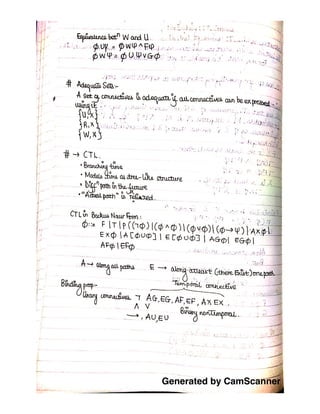 Equivalence betⁿ W and U.
ϕUψ = ϕWψ ^ Fψ
ϕWψ = ϕUψ v Gϕ
# Adequate Sets -
A set of connectives is adequate if all connectives can be expressed
using it
{U, X}
{R, X}
{W, X}
# → CTL.
• Branching time
• Models time as tree-like structure
• Diffⁿ path in the future
• "Actual path" is realised.
CTL in Backus Naur Form:
ϕ::= F|T|P|(¬ϕ)|(ϕ^ϕ)|(ϕvϕ)|(ϕ→ψ)|AXϕ|
EXϕ|A[ϕUϕ]|E[ϕUϕ]|AGϕ|EGϕ|
AFϕ|EFϕ
A → along all paths E → along atleast (there Exist) one path
Binding prop - Temporal connective
Unary connectives ¬ AG, EG, AF, EF, AX EX.
^ v Binary non temporal.
→, AU, EU
Generated by CamScanner